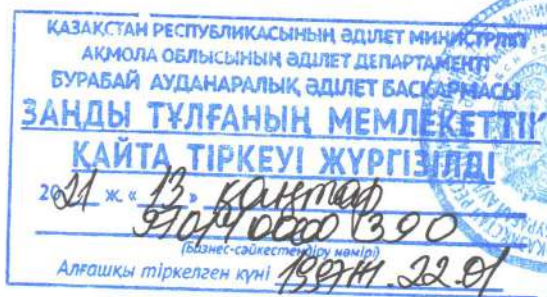 ҚАЗАҚСТАН РЕСПУБЛИКАСЫНЫҢ ӘДІЛЕТ МИНИСТРЛІГІ
АҚМОЛА ОБЛЫСЫНЫҢ ӘДІЛЕТ ДЕПАРТАМЕНТІ
БУРАБАЙ АУДАНАРАЛЫҚ ӘДІЛЕТ БАСҚАРМАСЫ
ЗАҢДЫ ТҰЛҒАНЫҢ МЕМЛЕКЕТТІК
ҚАЙТА ТІРКЕУІ ЖҮРГІЗІЛДІ
2021 ж. «13» қаңтар
(Бизнес-сәйкестендіру нөмірі)
Алғашқы тіркелген күні 1997ж. 22.01